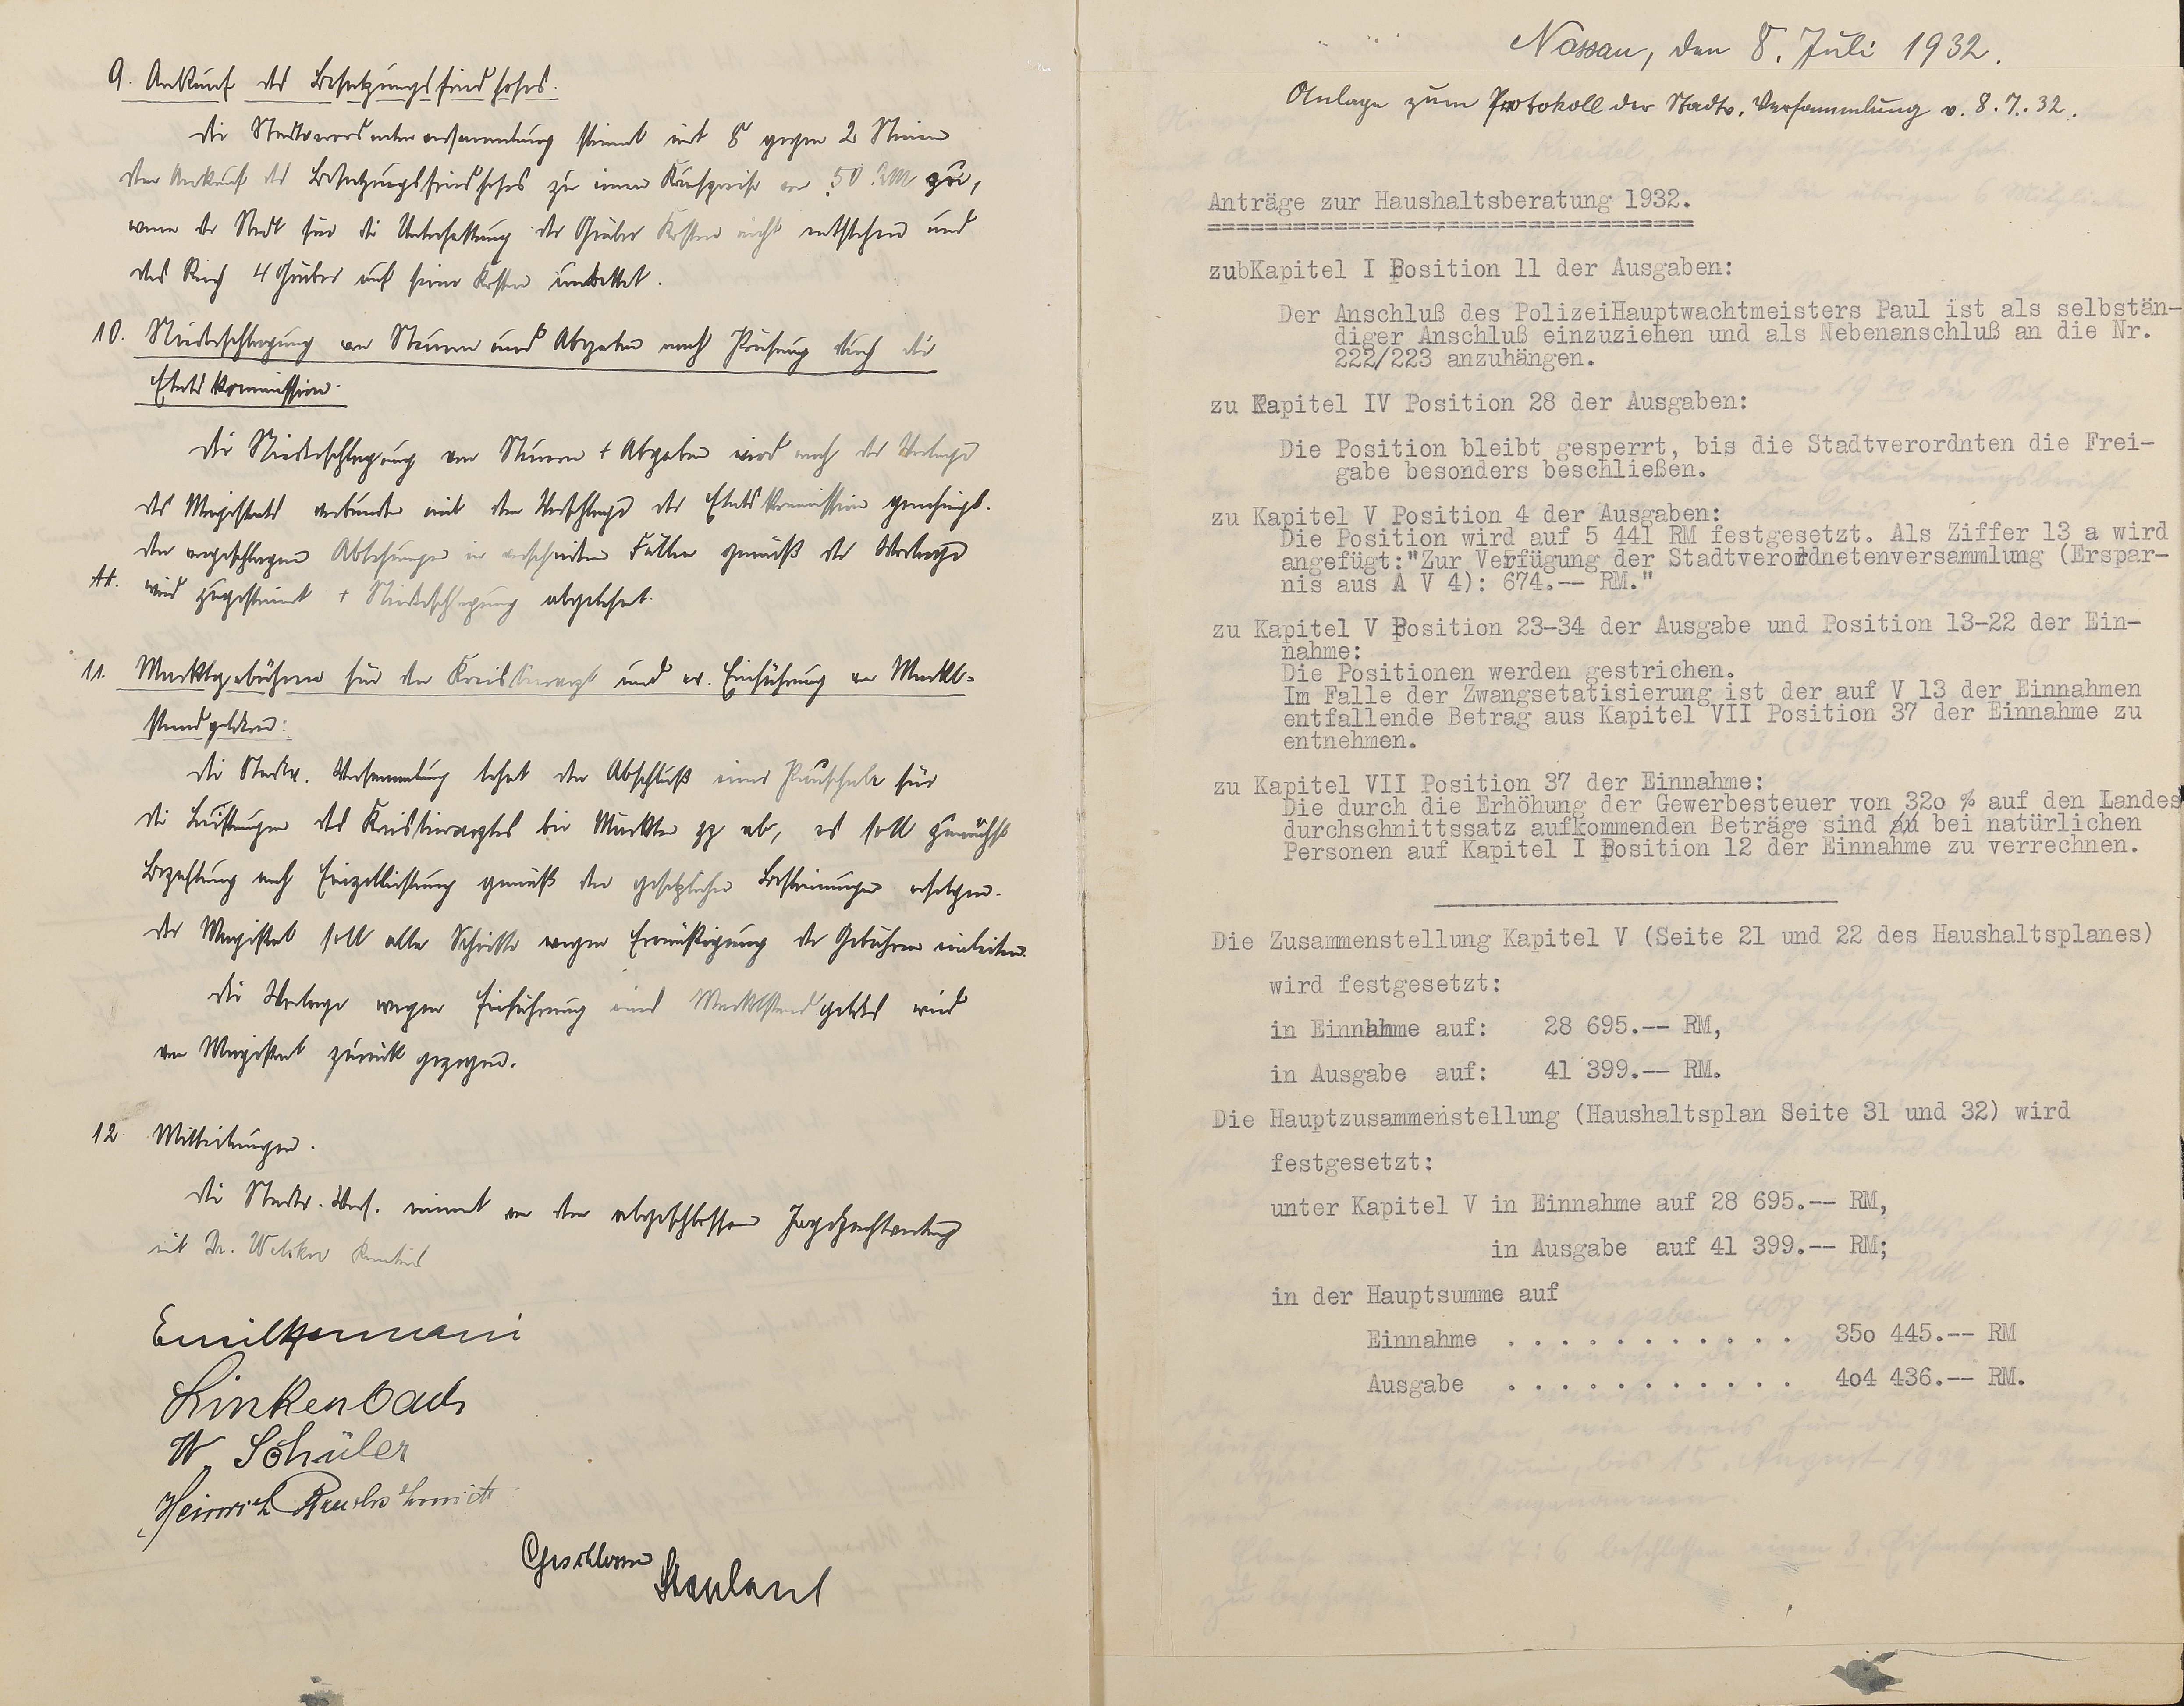 9. Ankauf des Besatzungsfriedhofes.
Die Stadtverordnetenversammlung stimmt mit 8 gegen 2 Stimmen
dem Ankauf des Besatzungsfriedhofes zu einem Kaufpreise von 50 RM zu,
wenn der Stadt für die Unterhaltung der Gräber Kosten nicht entstehen und
das Reich 4 Gräber auf seine Kosten umbettet.
10. Niederschlagung von Steuern und Abgaben nach Prüfung durch die
Etatskommission.
Die Niederschlagung von Steuern + Abgaben wird nach der Vorlage
des Magistrats verbunden mit dem Vorschlage der Etatskommission genehmigt.
Den vorgeschlagenen Ablehnungen in Fällen gemäß der Vorlage
wird zugestimmt + Niederschlagung abgelehnt.
11. Marktgebühren für den Kreistierarzt und ev. Einführung von Markt-
standgeldern:
Die Stadtv. Versammlung lehnt den Abschluß einer Pauschale für
die Leistungen des Kreistierarztes bei Märkten pp ab, es soll zunächst
Bezahlung nach Einzelleistung gemäß den gesetzlichen Bestimmungen erfolgen.
Der Magistrat soll alle Schritte wegen Ermäßigung der Gebühren einleiten.
Die Vorlage wegen Einführung eines Marktstandgeldes wird
vom Magistrat zurück gezogen.
12 Mitteilungen.
Die Stadtv. Vers. nimmt von dem abgeschlossenen Jagdpachtvertrag
mit Dr. Kenntnis
Emil Hermani
Linkenbach
W. Schüler
Heinrich
Geschlossen
Nassau, den 8. Juli 1932.
Anlage zum Protokoll der Stadtv. Versammlung v. 8.7.32.
Anträge zur Haushaltsberatung 1932.
zubKapitel I Position 11 der Ausgaben:
Der Anschluß des PolizeiHauptwachtmeisters Paul ist als selbstän-
diger Anschluß einzuziehen und als Nebenanschluß an die Nr.
222/223 anzuhängen.
zu Kapitel IV Position 28 der Ausgaben:
Die Position bleibt gesperrt, bis die Stadtverordnten die Frei-
gabe besonders beschließen.
zu Kapitel V Position 4 der Ausgaben:
Die Position wird auf 5 441 RM festgesetzt. Als Ziffer 13 a wird
angefügt:"Zur Verfügung der Stadtverordnetenversammlung (Erspar-
nis aus A V 4): 674.-- RM."
zu Kapitel V Position 23-34 der Ausgabe und Position 13-22 der Ein-
nahme:
Die Positionen werden gestrichen.
Im Falle der Zwangsetatisierung ist der auf V 13 der Einnahmen
entfallende Betrag aus Kapitel VII Position 37 der Einnahme zu
entnehmen.
zu Kapitel VII Position 37 der Einnahme:
Die durch die Erhöhung der Gewerbesteuer von 32o % auf den Landes
durchschnittssatz aufkommenden Beträge sind an bei natürlichen
Personen auf Kapitel I Position 12 der Einnahme zu verrechnen.
Die Zusammenstellung Kapitel V (Seite 21 und 22 des Haushaltsplanes)
wird festgesetzt:
in Einnahme auf: 28 695.-- RM,
in Ausgabe auf: 41 399.-- RM.
Die Hauptzusammenstellung (Haushaltsplan Seite 31 und 32) wird
festgesetzt:
unter Kapitel V in Einnahme auf 28 695.-- RM,
in Ausgabe auf 41 399.-- RM;
in der Hauptsumme auf
Einnahme . . . . . . . . . . . . 35o 445.-- RM
Ausgabe . . . . . . . . . . . . 4o4 436.-- RM.